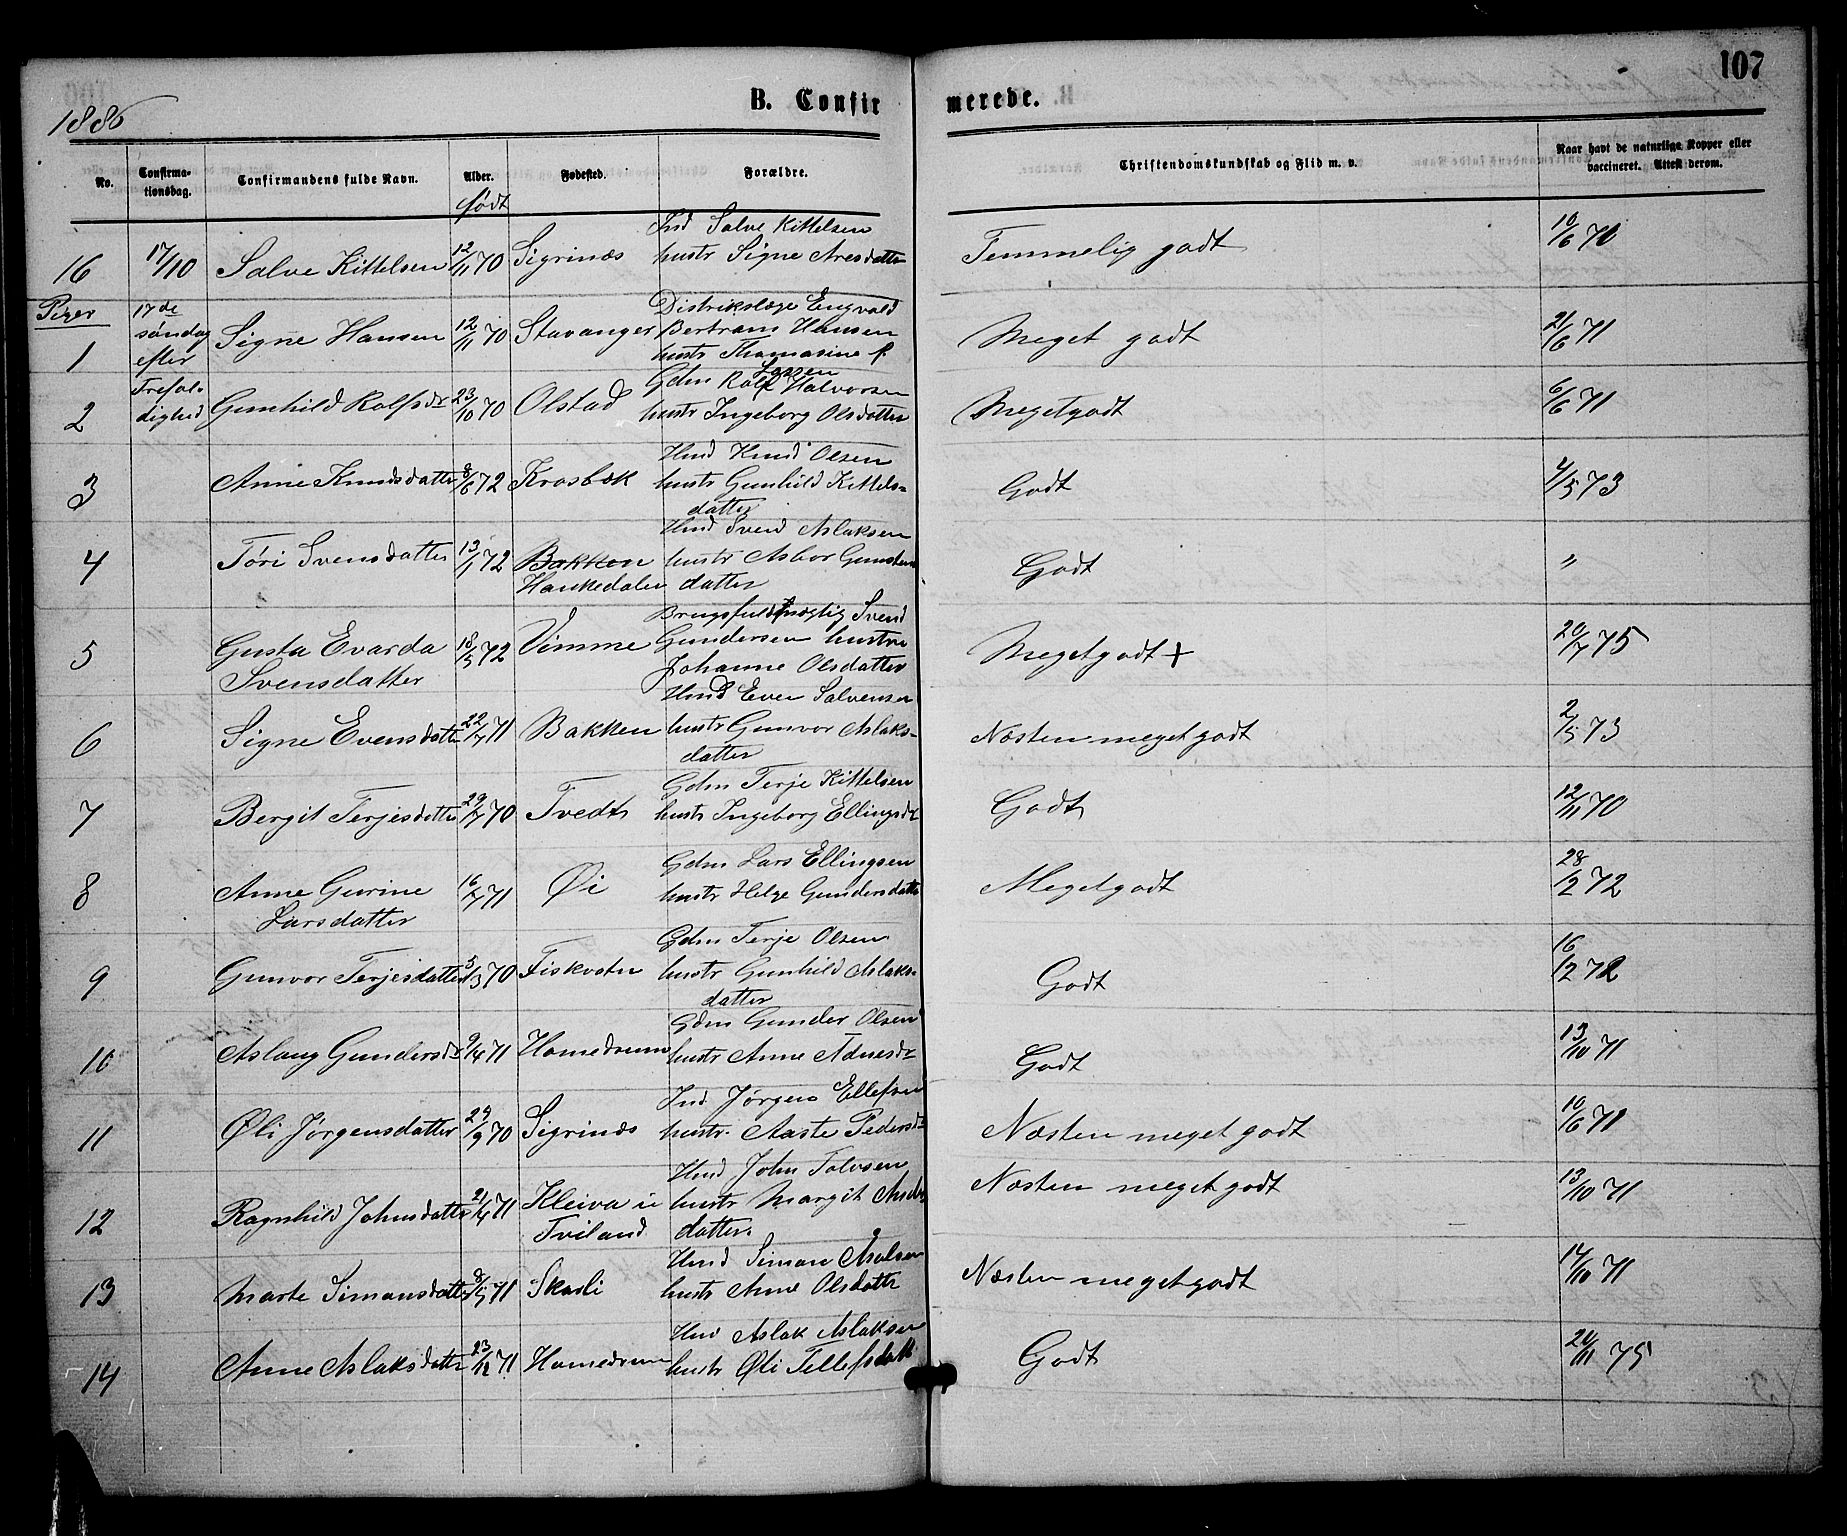 107
1886
B. Confirmerede.
No. Confirmationsdag. Confirmandens fulde Navn. Alder. født Fødested. Forældre. Christendomskundskab og Flid m. v. Naar havt de naturlige Kopper eller vaccineret. Attest derom.
16 17/10 Salve Kittelsen 12/11 70 Sigrinæs Ind Salve Kittelsen Temmelig godt 10/6 70
hustr Signe Aresdatter
Piger 17de søndag efter Trefoldighed
1 Signe Hansen 12/11 70 Stavanger Distrikslæge Engvald Meget godt 21/6 71
Bertrans Hansen
hustr Thomasine f. Lassen
2 Gunhild Rolfsdr 23/10 70 Olstad Gdm Rolf Halvorsen Megetgodt 6/6 71
hustr Ingeborg Olsdatter
3 Anne Knudsdatter 8/6 72 Krosbæk Hmd Knud Olsen Godt 4/5 73
hustr Gunhild Kittels-
datter
4 Tøri Svensdatter 13/1 72 Bakken Hmd Svend Aslaksen Godt "
Hankedalen hustr Asbor
datter
5 Gusta Evarda 18/5 72 Vimme Brugsfuldmægtig Svend Megetgodt + 20/7 75
Svensdatter Gundersen hustru
Johanne Olsdatter
6 Signe Evensdatter 22/7 71 Bakken Hmd Even Salvensen Næsten meget godt 2/5 73
hustr Gunvor Aslaks-
datter
7 Bergit Terjesdatter 29/7 70 Tvedt Gdm Terje Kittelsen Godt 12/11 70
hustr Ingeborg Ellingsdr
8 Anne Gurine 16/7 71 Øi Gdm Lars Ellingsen Megetgodt 28/2 72
Larsdatter hustr Helge Gundersdatter
9 Gunvor Terjesdatter 5/3 70 Fiskvatn Gdm Terje Olsen Godt 16/12 72
hustr Gunhild Aslaks-
datter
10 Aslaug Gundersdr 9/4 71 Homedrum Gdm Gunder Olsen Godt 13/10 71
hustr Anne Adnesdr
11 Øli Jørgensdatter 29/9 70 Sigrinæs Ind. Jørgen Ellefsen Næsten meget godt 10/6 71
hustr. Aaste Pedersdr
12 Ragnhild Johnsdatter 21/4 71 Kleiva i Hmd John Tolvsen Næsten meget godt 13/10 71
Tviland hustr Margit
datter.
13 Marte Simonsdatter 8/5 71 Skaali Hmd Simon Næsten meget godt 14/10 71
hustr Anne Olsdatter
14 Anne Aslaksdatter 23/12 71 Homedrum Hmd Aslak Aslaksen Godt 24/11 75
hustr Øli Tellefsdatt